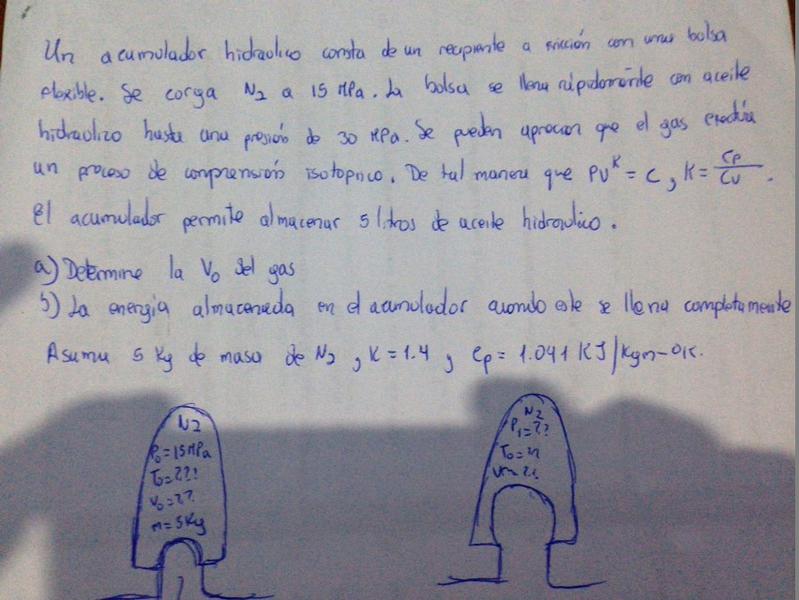 Un acumulador hidraolico consta de un recipiente a fricción con una bolsa
flexible. Se carga N2 a 15 MPa. La bolsa se llena rápidamente con aceite
hidraolizo hasta una presión de 30 MPa. Se pueden aprocian que el gas
un proceso de comprensión isotopico. De tal manera que PV^K = C, K = Cp/Cv.
El acumulador permite almacenar 5 litros de aceite hidraulico.
a) Determine la Vo del gas
b) La energia almacenada en el acumulador cuando este se llena completamente
Asuma 5 Kg de masa de N2, K = 1.4 y Cp = 1.041 KJ/Kgm-oK.
N2
Po = 15 MPa
To = ???
Vo = ??
m = 5 Kg
N2
P1 = ??
To = ??